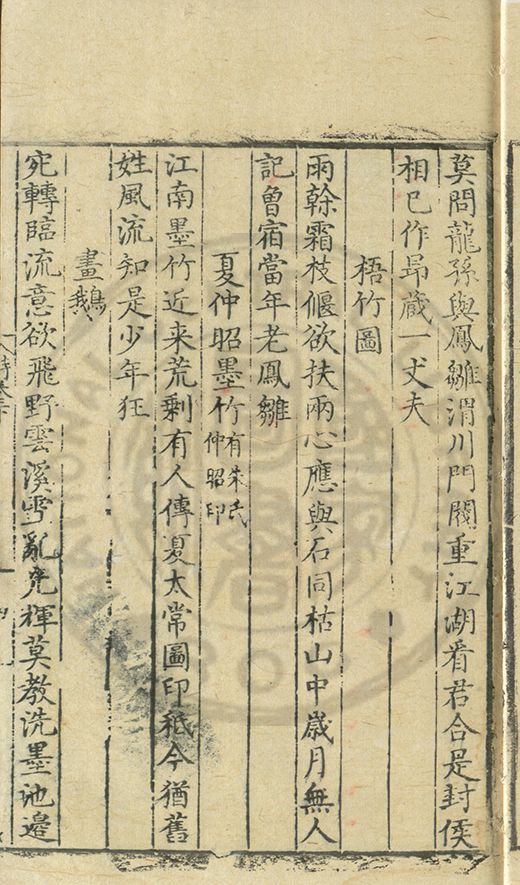 莫問龍孫與鳳雛渭川門閥重江湖看君合是封侯
相已作昂藏一丈夫
梧竹圖
雨榦霜枝偃欲扶兩心應與石同枯山中歳月無人
記曾宿當年老鳳雛
夏仲昭墨竹有朱氏仲昭印
江南墨竹近来荒剩有人傳夏太常圖印秪今猶舊
姓風流知是少年狂
畫鵝
宛轉臨流意欲飛野雲溪雪亂光輝莫教洗墨池邊